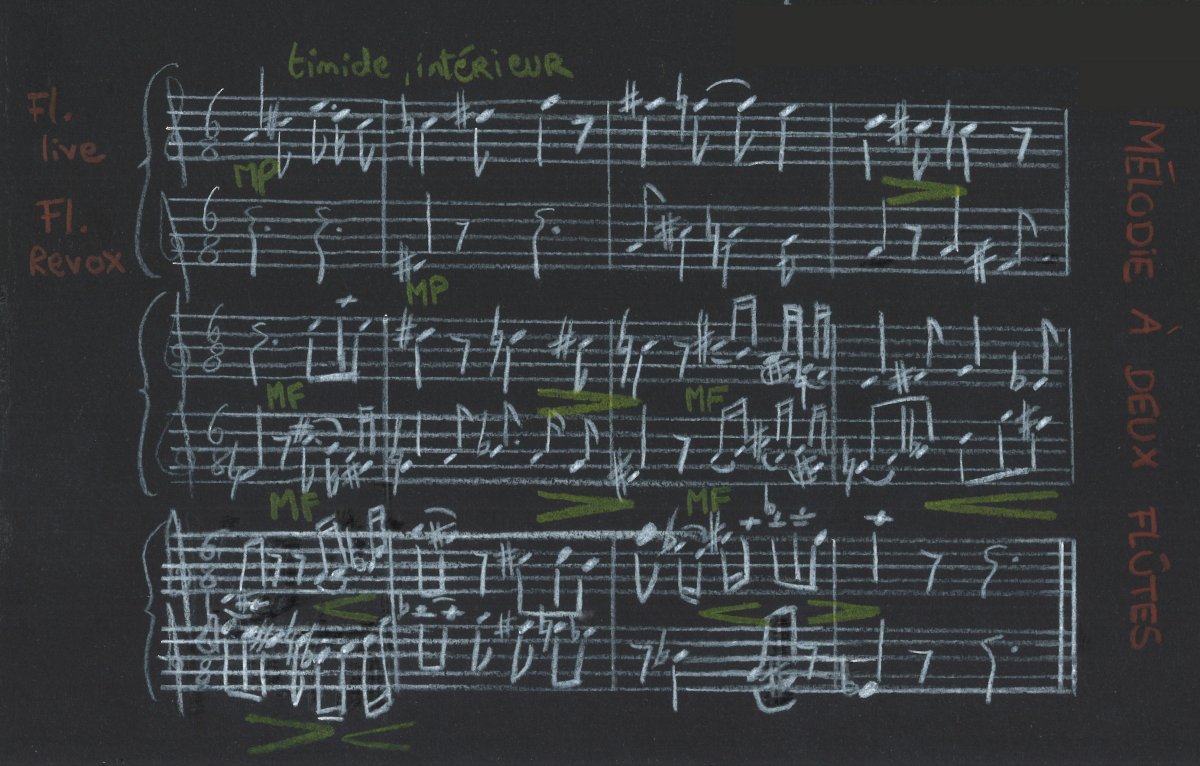 timide, intérieur
Fl.
live
MP
Fl.
Revox
MP
MF
MF
MF
MF
MÉLODIE À DEUX FLÛTES